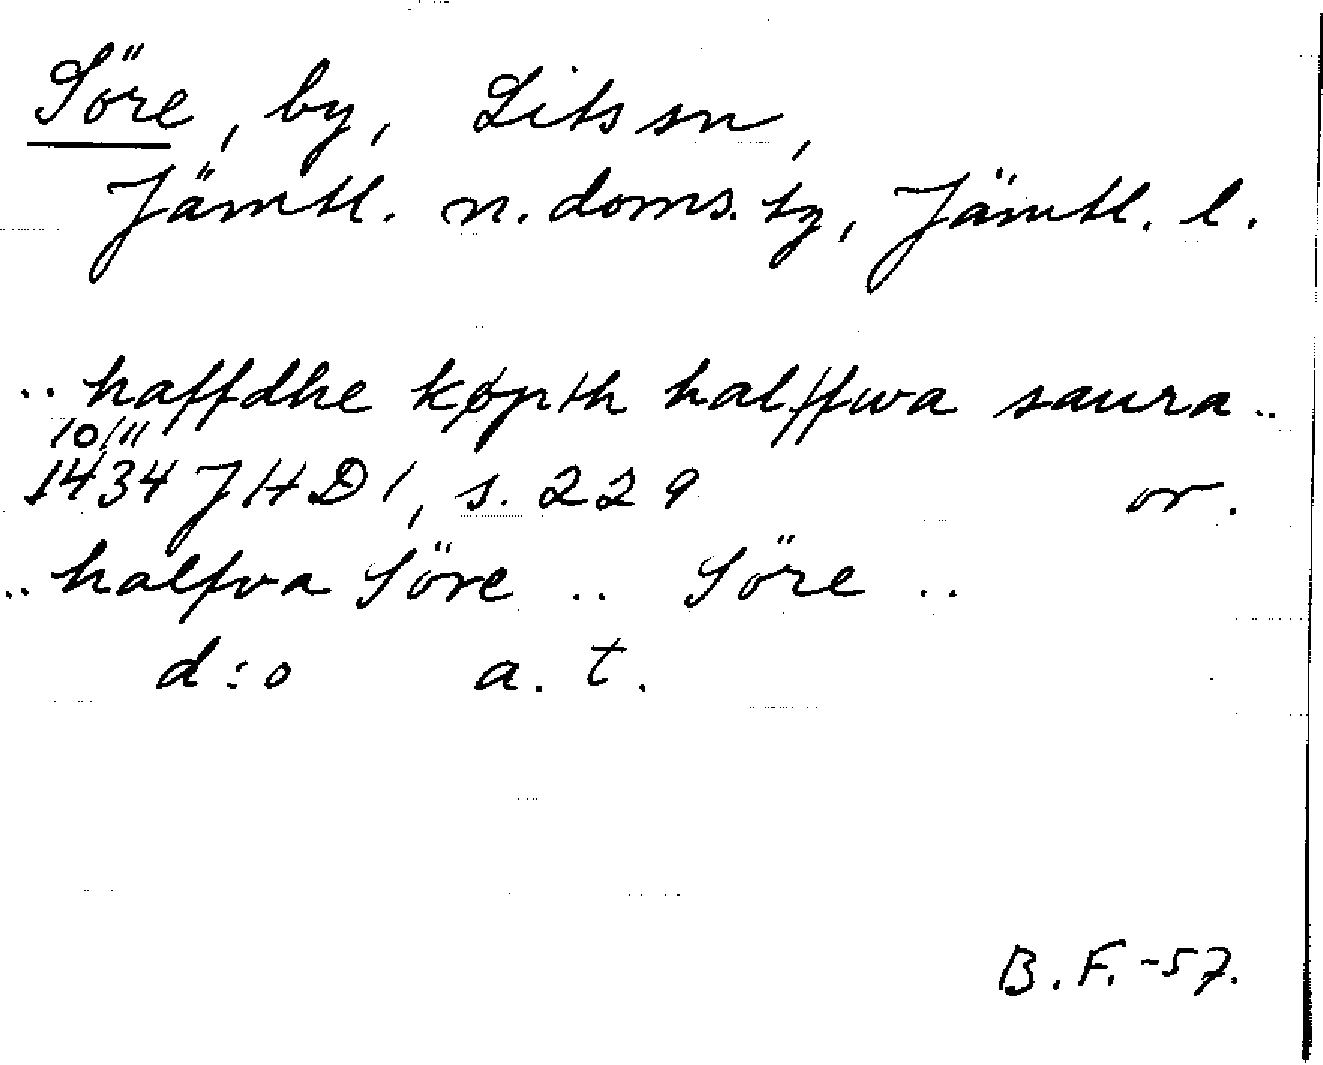 Söre, by, Lits sn,
Jämtl. n. doms. tg, Jämtl. l.
.. haffdhe køpth halffwa saura ..
10/11
1434 JHD 1, s. 229 or.
.. halfva Söre .. Söre ..
d:o a. t.
B. F. -57.